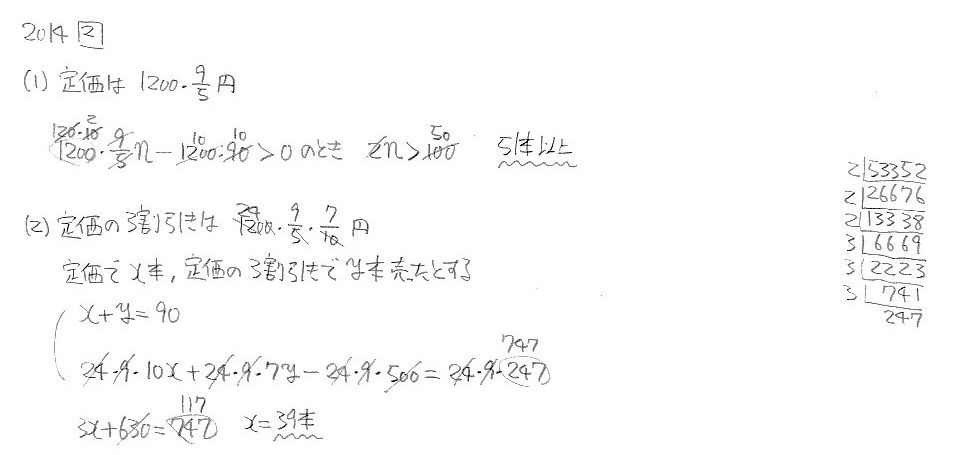 2014 2
(1) 定価は 1200・9/5 円
120・10 2 10 10 50
1200・9/5 n − 1200・90 > 0 のとき 2n > 100 51本以上
(2) 定価の3割引きは 1200・9/5・7/10 円
24
定価で x本, 定価の3割引きで y本売ったとする
x + y = 90
747
24・9・10x + 24・9・7y − 24・9・500 = 24・9・247
117
3x + 630 = 747 x = 39本
2 53352
2 26676
2 13338
3 6669
3 2223
3 741
247